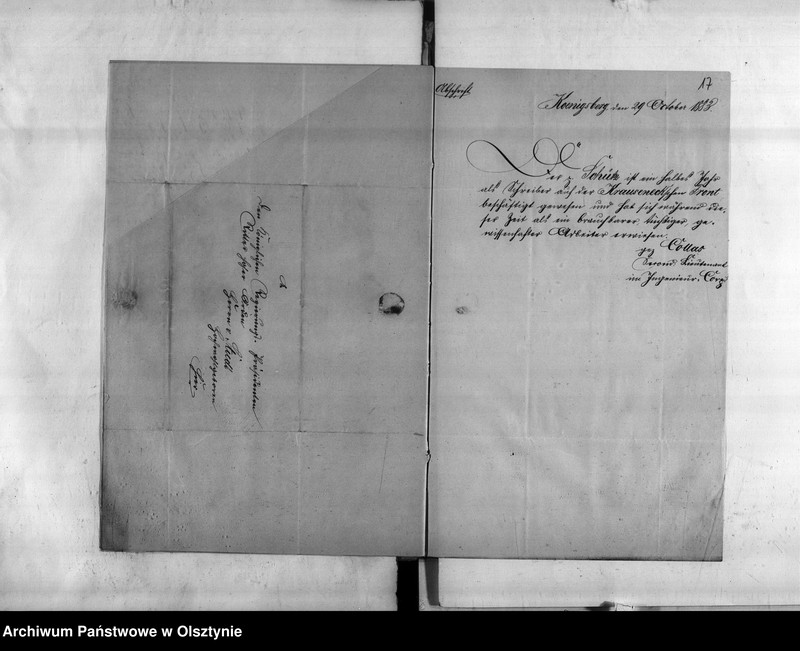 An
Den Königlichen Regierungs-Präsidenten
Ritter hoher Orden
Herrn v.
Hochwohlgeboren
hier
17
Abschrift
Koenigsberg den 29 October
Der p. Schütz ist ein halbes Jahr
als Schreiber auf der Krauseneckschen Front
beschäftigt gewesen und hat sich während die-
ser Zeit als ein brauchbarer, tüchtiger, ge-
wissenhafter Arbeiter erwiesen.
gez Collas
Second Lieutenant
im Ingenieur-Corps
Archiwum Państwowe w Olsztynie